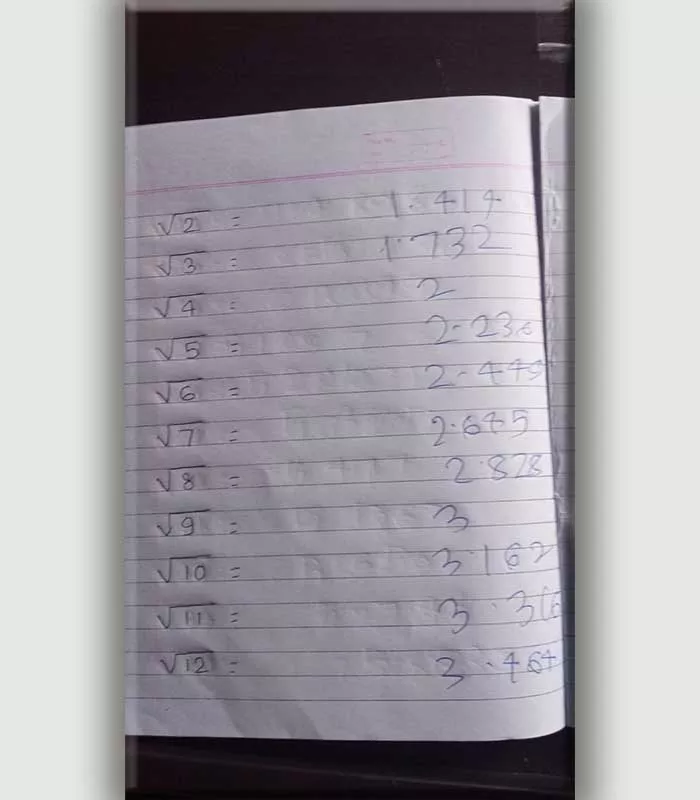 √2 = 1.414
√3 = 1.732
√4 = 2
√5 = 2.236
√6 = 2.449
√7 = 2.645
√8 = 2.828
√9 = 3
√10 = 3.162
√11 = 3.316
√12 = 3.464